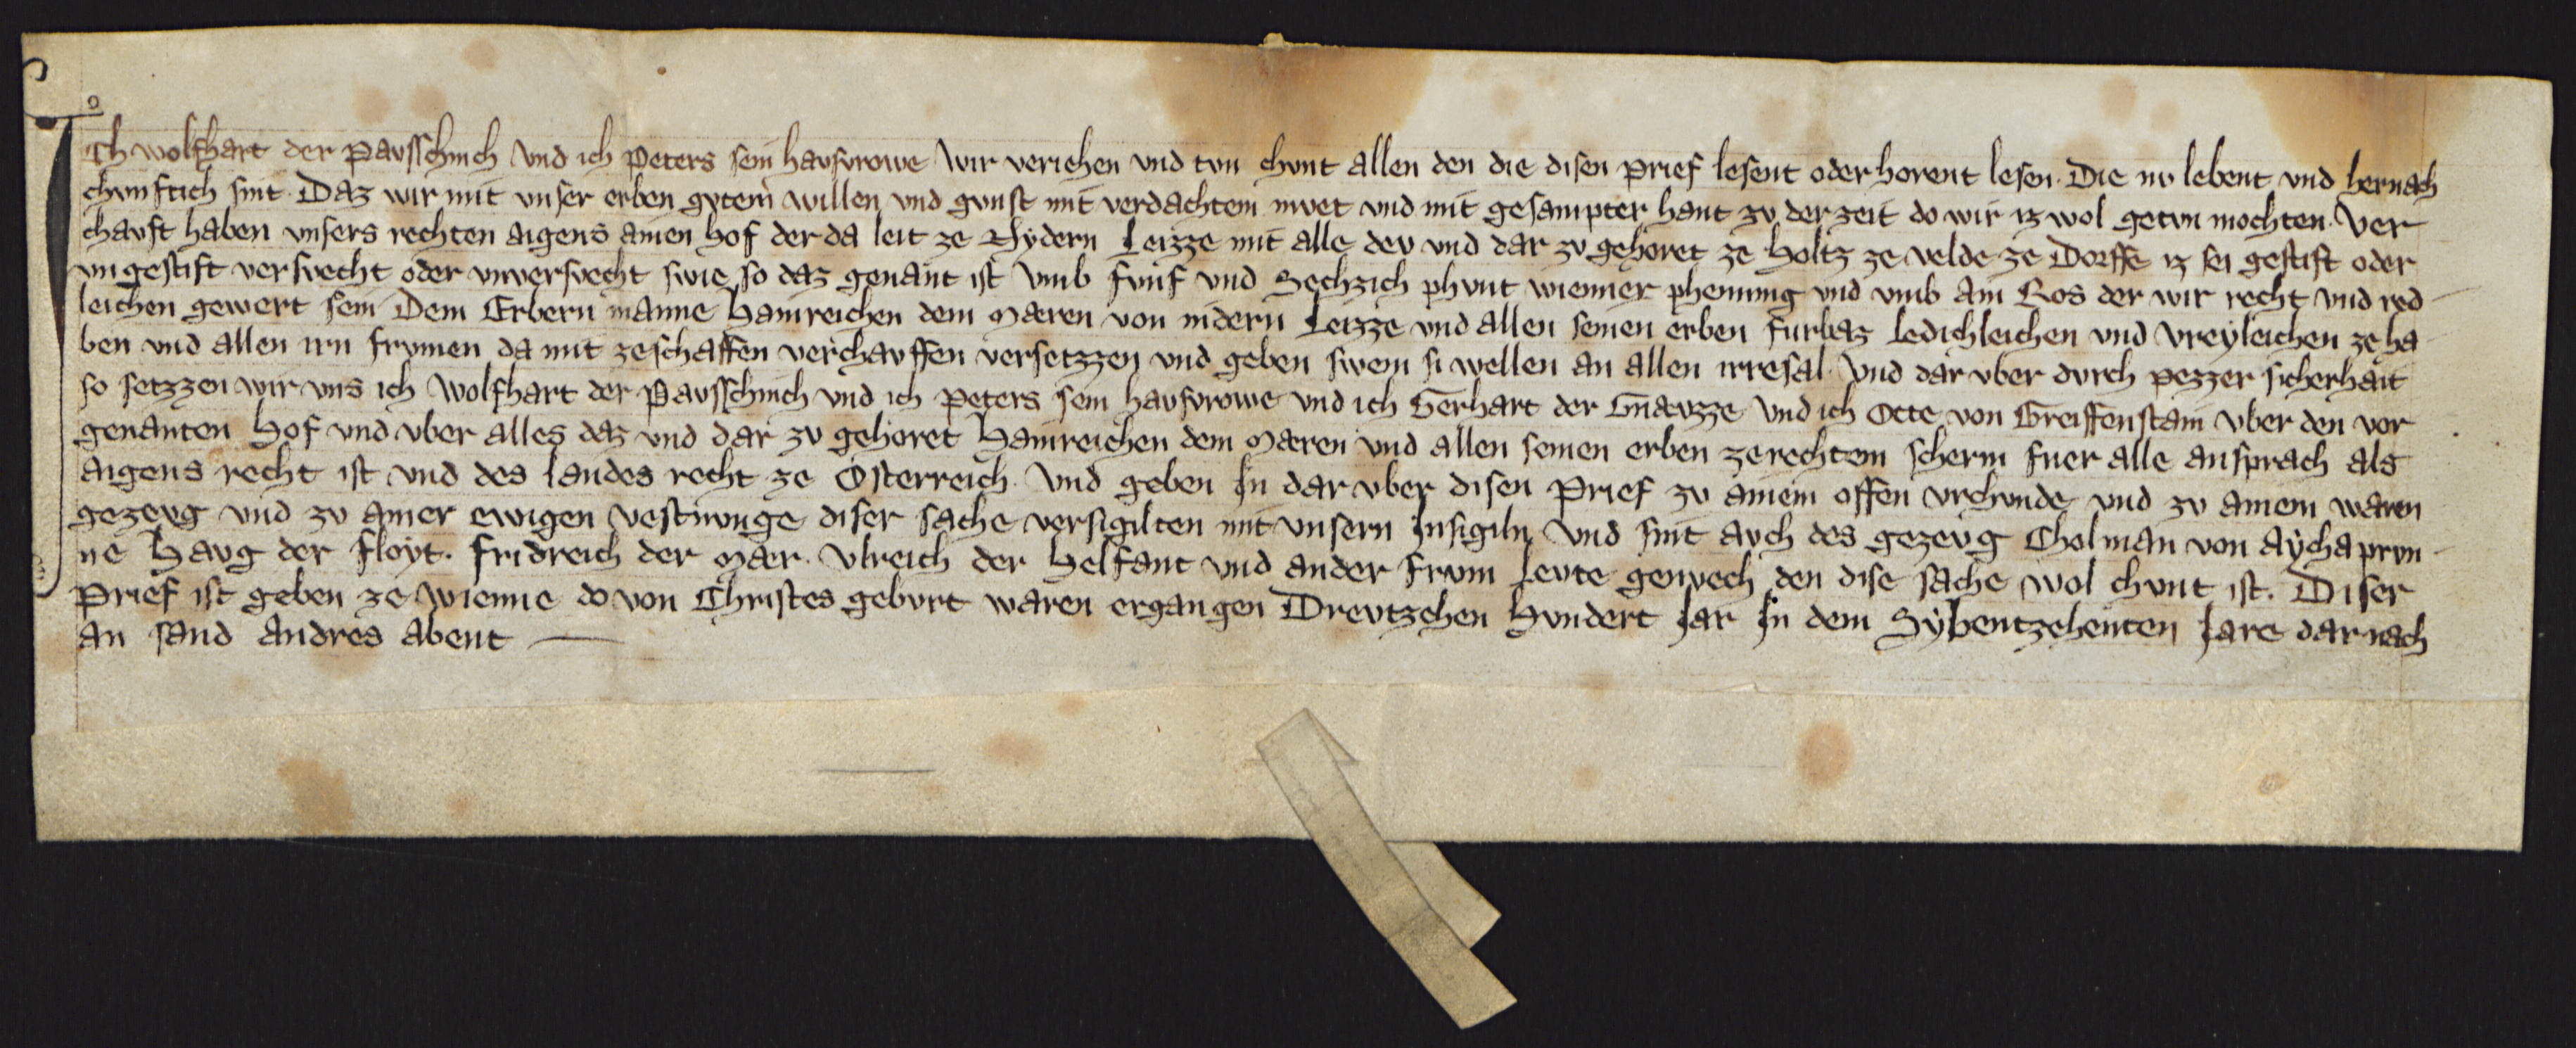 Ich wolfhart der pavsschinch vnd ich peters sein havsvrowe wir veriehen vnd tvn chvnt allen den die disen prief lesent oder horent lesen. Die nv lebent vnd hernach
chvnftich sint. Daz wir mit vnser erben gvtem willen vnd gvnst mit verdachtem mvet vnd mit gesampter hant zv der zeit do wir iz wol getvn mochten. Ver
chavft haben vnsers rechten aigens ainen hof der da leit ze Nydern Leizze mit alle dev vnd dar zv gehoret ze holtz ze velde ze Dorffe iz sei gestift oder
vngestift versvecht oder vnversvecht swie so daz genant ist vmb fvnf vnd Sechzich phvnt wienner phenning vnd vmb ain Ros der wir recht vnd red
leichen gewert sein Dem Erbern manne Hainreichen dem Maren von nidern Leizze vnd allen seinen erben furbaz ledichleichen vnd vreyleichen ze ha
ben vnd allen irn frvmen da mit ze schaffen verchavffen versetzzen vnd geben swem si wellen an allen irresal. Vnd dar vber dvrch pezzer sicherhait
so setzzen wir vns ich wolfhart der pavsschinch vnd ich peters sein havsvrowe vnd ich Gerhart der Gnævzze vnd ich Otte von Greiffenstain vber den vor
genanten hof vnd vber alles daz vnd dar zv gehoret Hainreichen dem Maren vnd allen seinen erben ze rechtem scherm fuer alle ansprach als
aigens recht ist vnd des landes recht ze Osterreich. Vnd geben in dar vber disen prief zv ainem offen vrchvnde vnd zv ainem waren
gezevg vnd zv ainer ewigen vestnvnge diser sache versigilten mit vnsern Insigiln vnd sint avch des gezevg Cholman von Aychaprvn
ne Havg der floyt. fridreich der Mær. Vlreich der Helfant vnd ander frvm levte genvech den dise sache wol chvnt ist. Diser
prief ist geben ze wienne do von Christes gebvrt waren ergangen Drevtzehen hvndert Jar In dem Sybentzehenten Jare dar nach
an sand Andres Abent